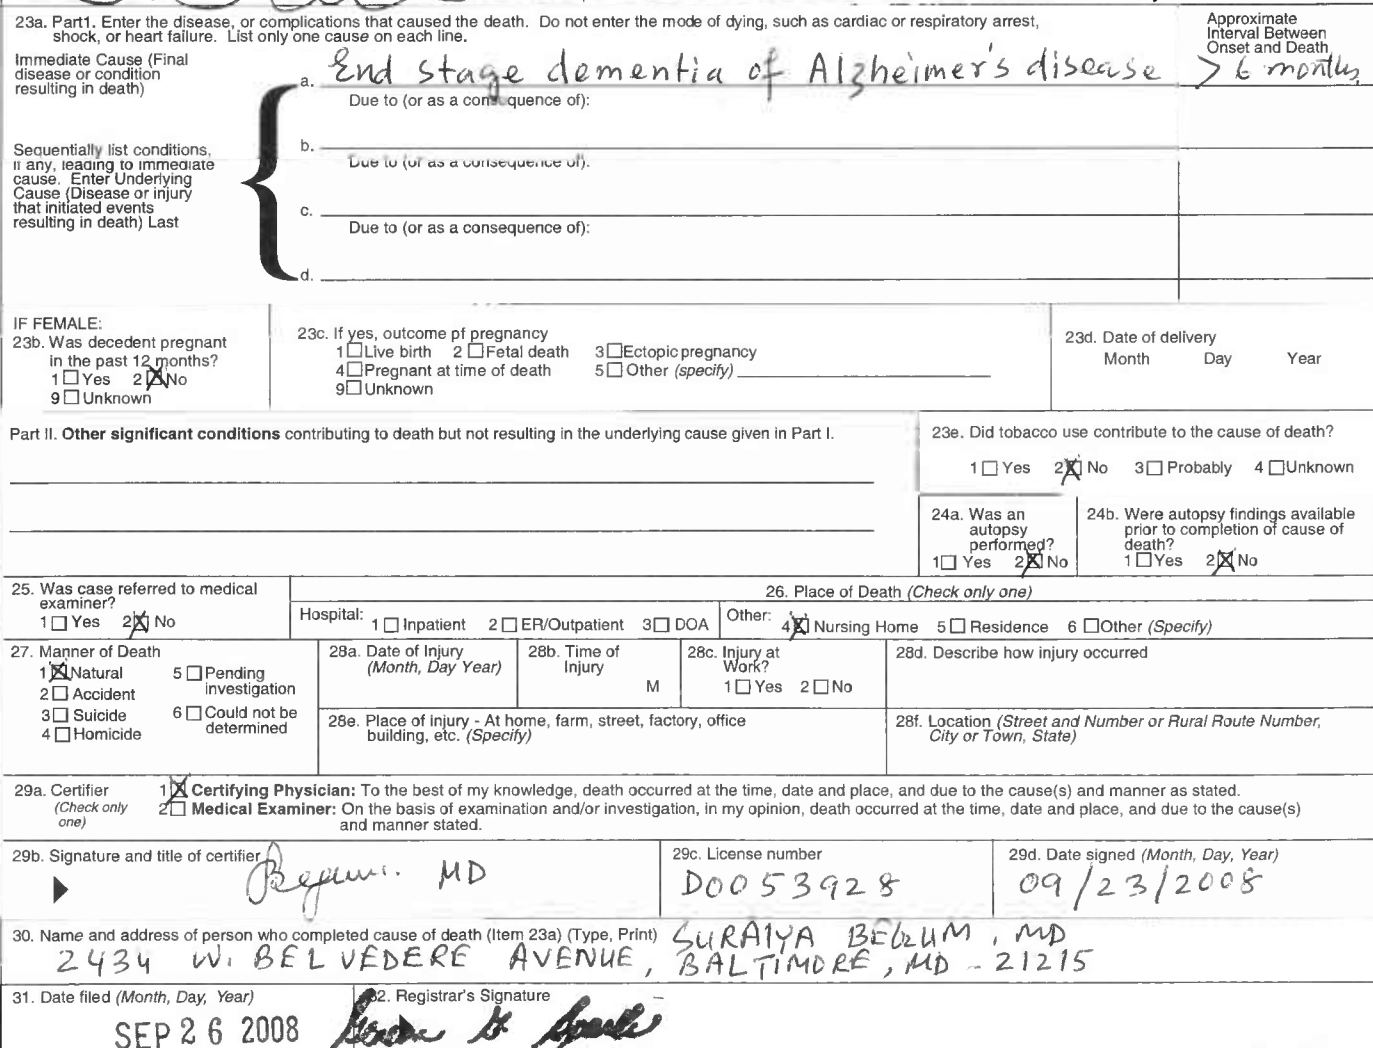 23a. Part1. Enter the disease, or complications that caused the death. Do not enter the mode of dying, such as cardiac or respiratory arrest,
shock, or heart failure. List only one cause on each line.
Approximate
Interval Between
Onset and Death
Immediate Cause (Final
disease or condition
resulting in death)
a. End stage dementia of Alzheimer's disease > 6 months
Due to (or as a consequence of):
b.
Due to (or as a consequence of):
Sequentially list conditions,
if any, leading to immediate
cause. Enter Underlying
Cause (Disease or injury
that initiated events
resulting in death) Last
c.
Due to (or as a consequence of):
d.
IF FEMALE:
23b. Was decedent pregnant
in the past 12 months?
1 ☐ Yes 2 ☒ No
9 ☐ Unknown
23c. If yes, outcome pf pregnancy
1 ☐ Live birth 2 ☐ Fetal death 3 ☐ Ectopic pregnancy
4 ☐ Pregnant at time of death 5 ☐ Other (specify)
9 ☐ Unknown
23d. Date of delivery
Month Day Year
Part II. Other significant conditions contributing to death but not resulting in the underlying cause given in Part I.
23e. Did tobacco use contribute to the cause of death?
1 ☐ Yes 2 ☒ No 3 ☐ Probably 4 ☐ Unknown
24a. Was an
autopsy
performed?
1 ☐ Yes 2 ☒ No
24b. Were autopsy findings available
prior to completion of cause of
death?
1 ☐ Yes 2 ☒ No
25. Was case referred to medical
examiner?
1 ☐ Yes 2 ☒ No
26. Place of Death (Check only one)
Hospital: 1 ☐ Inpatient 2 ☐ ER/Outpatient 3 ☐ DOA Other: 4 ☒ Nursing Home 5 ☐ Residence 6 ☐ Other (Specify)
27. Manner of Death
1 ☒ Natural
2 ☐ Accident
3 ☐ Suicide
4 ☐ Homicide
5 ☐ Pending
investigation
6 ☐ Could not be
determined
28a. Date of Injury
(Month, Day Year)
28b. Time of
Injury
M
28c. Injury at
Work?
1 ☐ Yes 2 ☐ No
28d. Describe how injury occurred
28e. Place of injury - At home, farm, street, factory, office
building, etc. (Specify)
28f. Location (Street and Number or Rural Route Number,
City or Town, State)
29a. Certifier
(Check only
one)
1 ☒ Certifying Physician: To the best of my knowledge, death occurred at the time, date and place, and due to the cause(s) and manner as stated.
2 ☐ Medical Examiner: On the basis of examination and/or investigation, in my opinion, death occurred at the time, date and place, and due to the cause(s)
and manner stated.
29b. Signature and title of certifier
Begum. MD
29c. License number
D0053928
29d. Date signed (Month, Day, Year)
09/23/2008
30. Name and address of person who completed cause of death (Item 23a) (Type, Print) SURAIYA BEGUM, MD
2434 W. BELVEDERE AVENUE, BALTIMORE, MD - 21215
31. Date filed (Month, Day, Year)
SEP 26 2008
32. Registrar's Signature